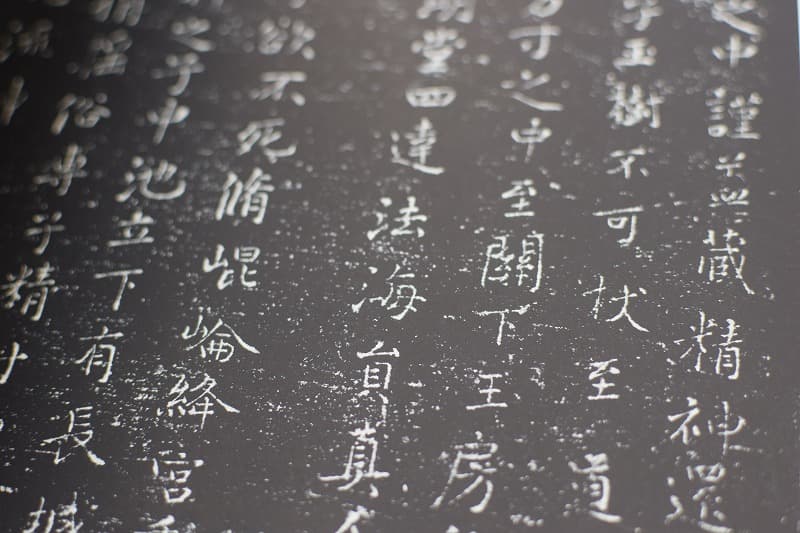 之中謹蓋藏精神還
子玉樹不可杖至道
方寸之中至關下玉房
明堂四達法海貟真
欲不死脩崐崘絳宮
之子中池立下有長城
捐淫俗專子精寸